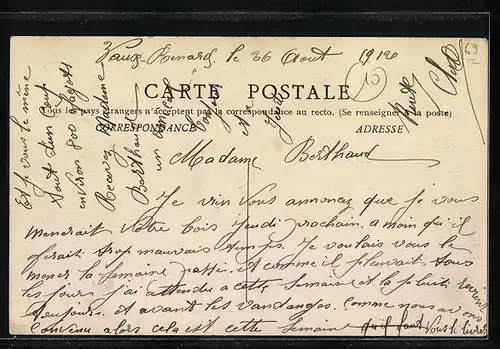 Vaux-Renard, le 26 Aout 1912
CARTE POSTALE
Tous les pays étrangers n'acceptent pas la correspondance au recto. (Se renseigner à la poste)
CORRESPONDANCE
ADRESSE
Madame Berthaud
Je vin vous annoncez que je vous
menerait votre bois Jeudi prochain, a moin qu'il
ferait trop mauvais temps. Je voulais vous le
mener la semaine passé. et comme il pleuvait tous
les jours j'ai attendu a cette semaine et la pluit revient
toujours. et avant les vandanges. Comme nous avons
convenu alors cela est cette semaine qu'il faut vous le livrez
Et je vous le mène
tout d'un coup
environ 800 fagots
Recevez Madame
Berthaud